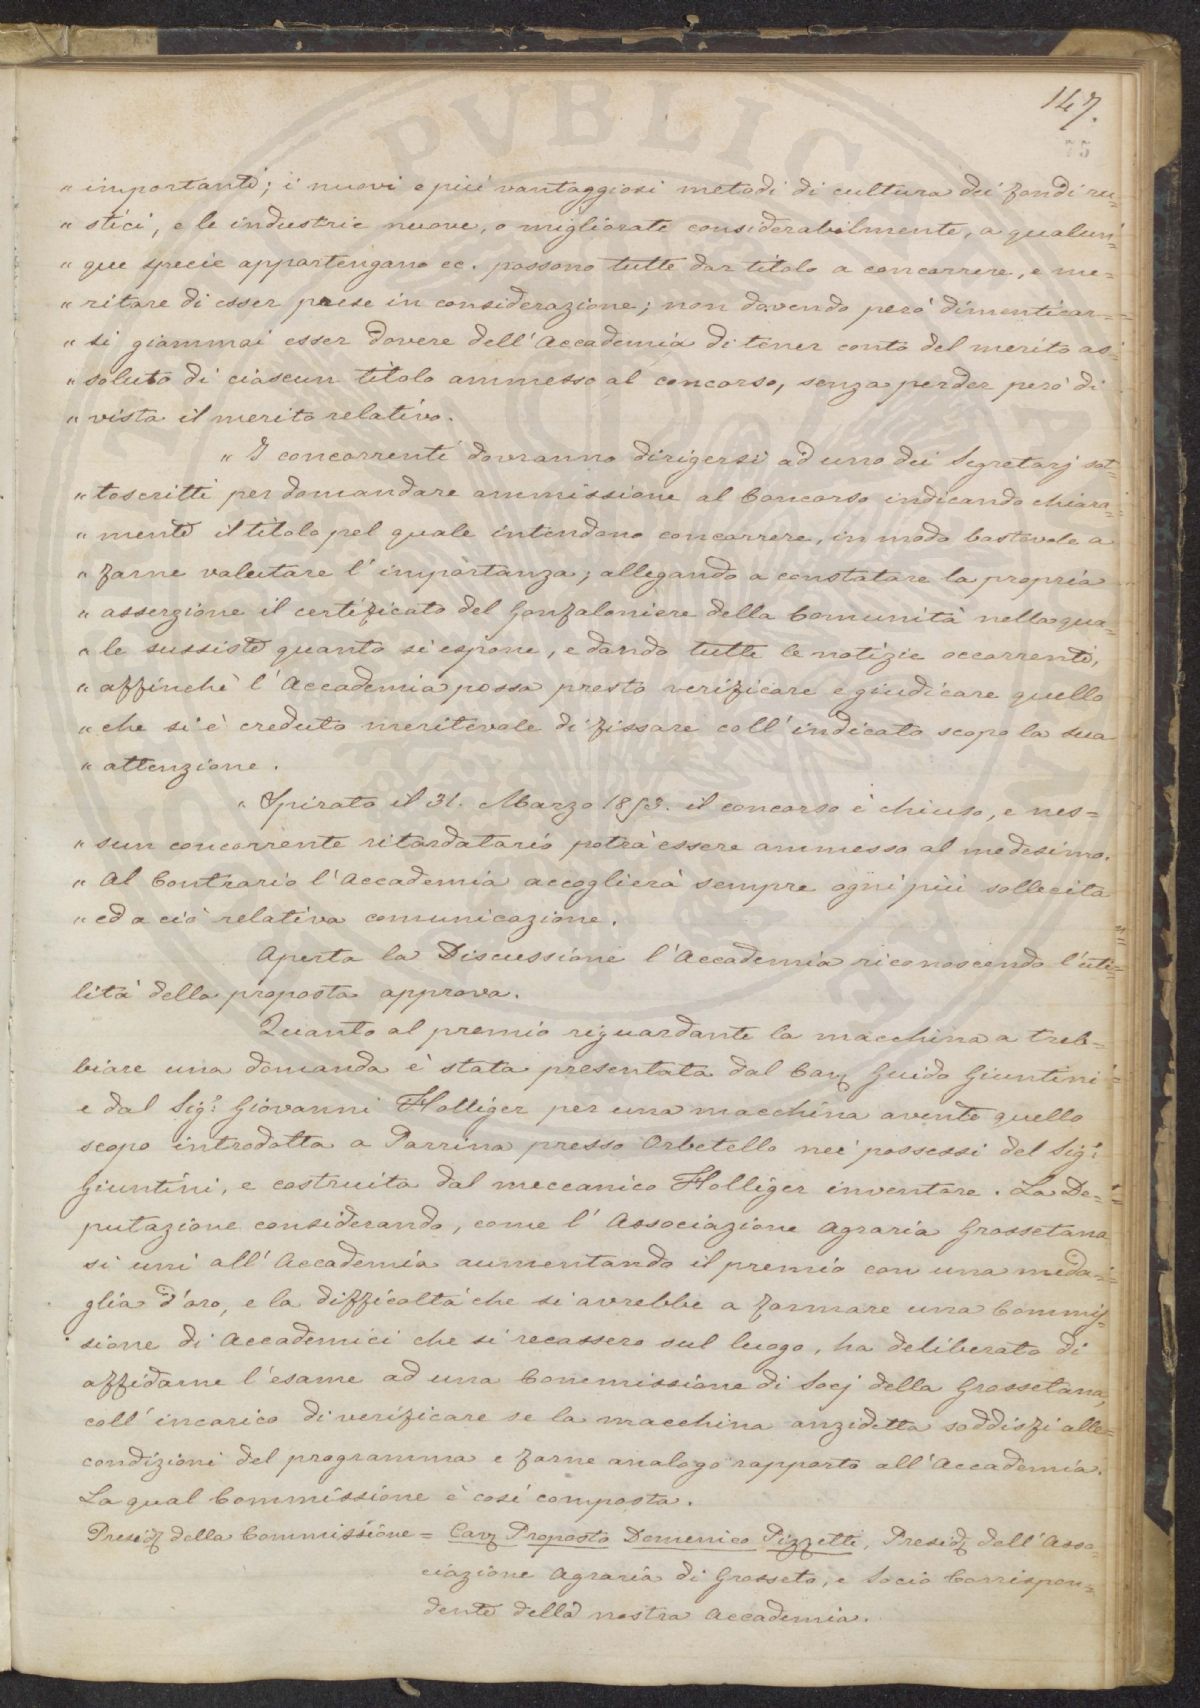 147.
75
„ importanti; i nuovi e più vantaggiosi metodi di cultura dei fondi ru=
„ stici, e le industrie nuove, o migliorate considerabilmente, a qualun=
„ que specie appartengano ec. possono tutte dar titolo a concorrere, e me=
„ ritare di esser prese in considerazione; non dovendo però dimenticar=
„ si giammai esser dovere dell'Accademia di tener conto del merito as=
„ soluto di ciascun titolo ammesso al concorso, senza perder però di
„ vista il merito relativo.
„ I concorrenti dovranno dirigersi ad uno dei Segretarj sot=
„ toscritti per domandare ammissione al Concorso indicando chiara=
„ mente il titolo pel quale intendono concorrere, in modo bastevole a
„ farne valutare l'importanza; allegando a constatare la propria
„ asserzione il certificato del Gonfaloniere della Comunità nella qua=
„ le sussiste quanto si espone, e dando tutte le notizie occorrenti,
„ affinchè l'Accademia possa presto verificare e giudicare quello
„ che si è creduto meritevole di fissare coll'indicato scopo la sua
„ attenzione.
„ Spirato il 31. Marzo 1853. il concorso è chiuso, e nes=
„ sun concorrente ritardatario potrà essere ammesso al medesimo.
„ Al Contrario l'Accademia accoglierà sempre ogni più sollecita
„ ed a ciò relativa comunicazione.
Aperta la Discussione l'Accademia riconoscendo l'uti=
lità della proposta approva.
Quanto al premio riguardante la macchina a treb=
biare una domanda è stata presentata dal Cav. Guido Giuntini
e dal Sigr. Giovanni Holliger per una macchina avente quello
scopo introdotta a Parrina presso Orbetello nei possessi del Sigr.
Giuntini, e costruita dal meccanico Holliger inventore. La De=
putazione considerando, come l'Associazione Agraria Grossetana
si unì all'Accademia aumentando il premio con una meda=
glia d'oro, e la difficoltà che si avrebbe a formare una Commis=
sione di Accademici che si recassero sul luogo, ha deliberato di
affidarne l'esame ad una Commissione di Socj della Grossetana,
coll'incarico di verificare se la macchina anzidetta soddisfi alle
condizioni del programma e farne analogo rapporto all'Accademia.
La qual Commissione è così composta.
Presid. della Commissione = Cav. Proposto Domenico Pizzetti, Presid. dell'Asso=
ciazione Agraria di Grosseto, e Socio Corrispon=
dente della nostra Accademia.